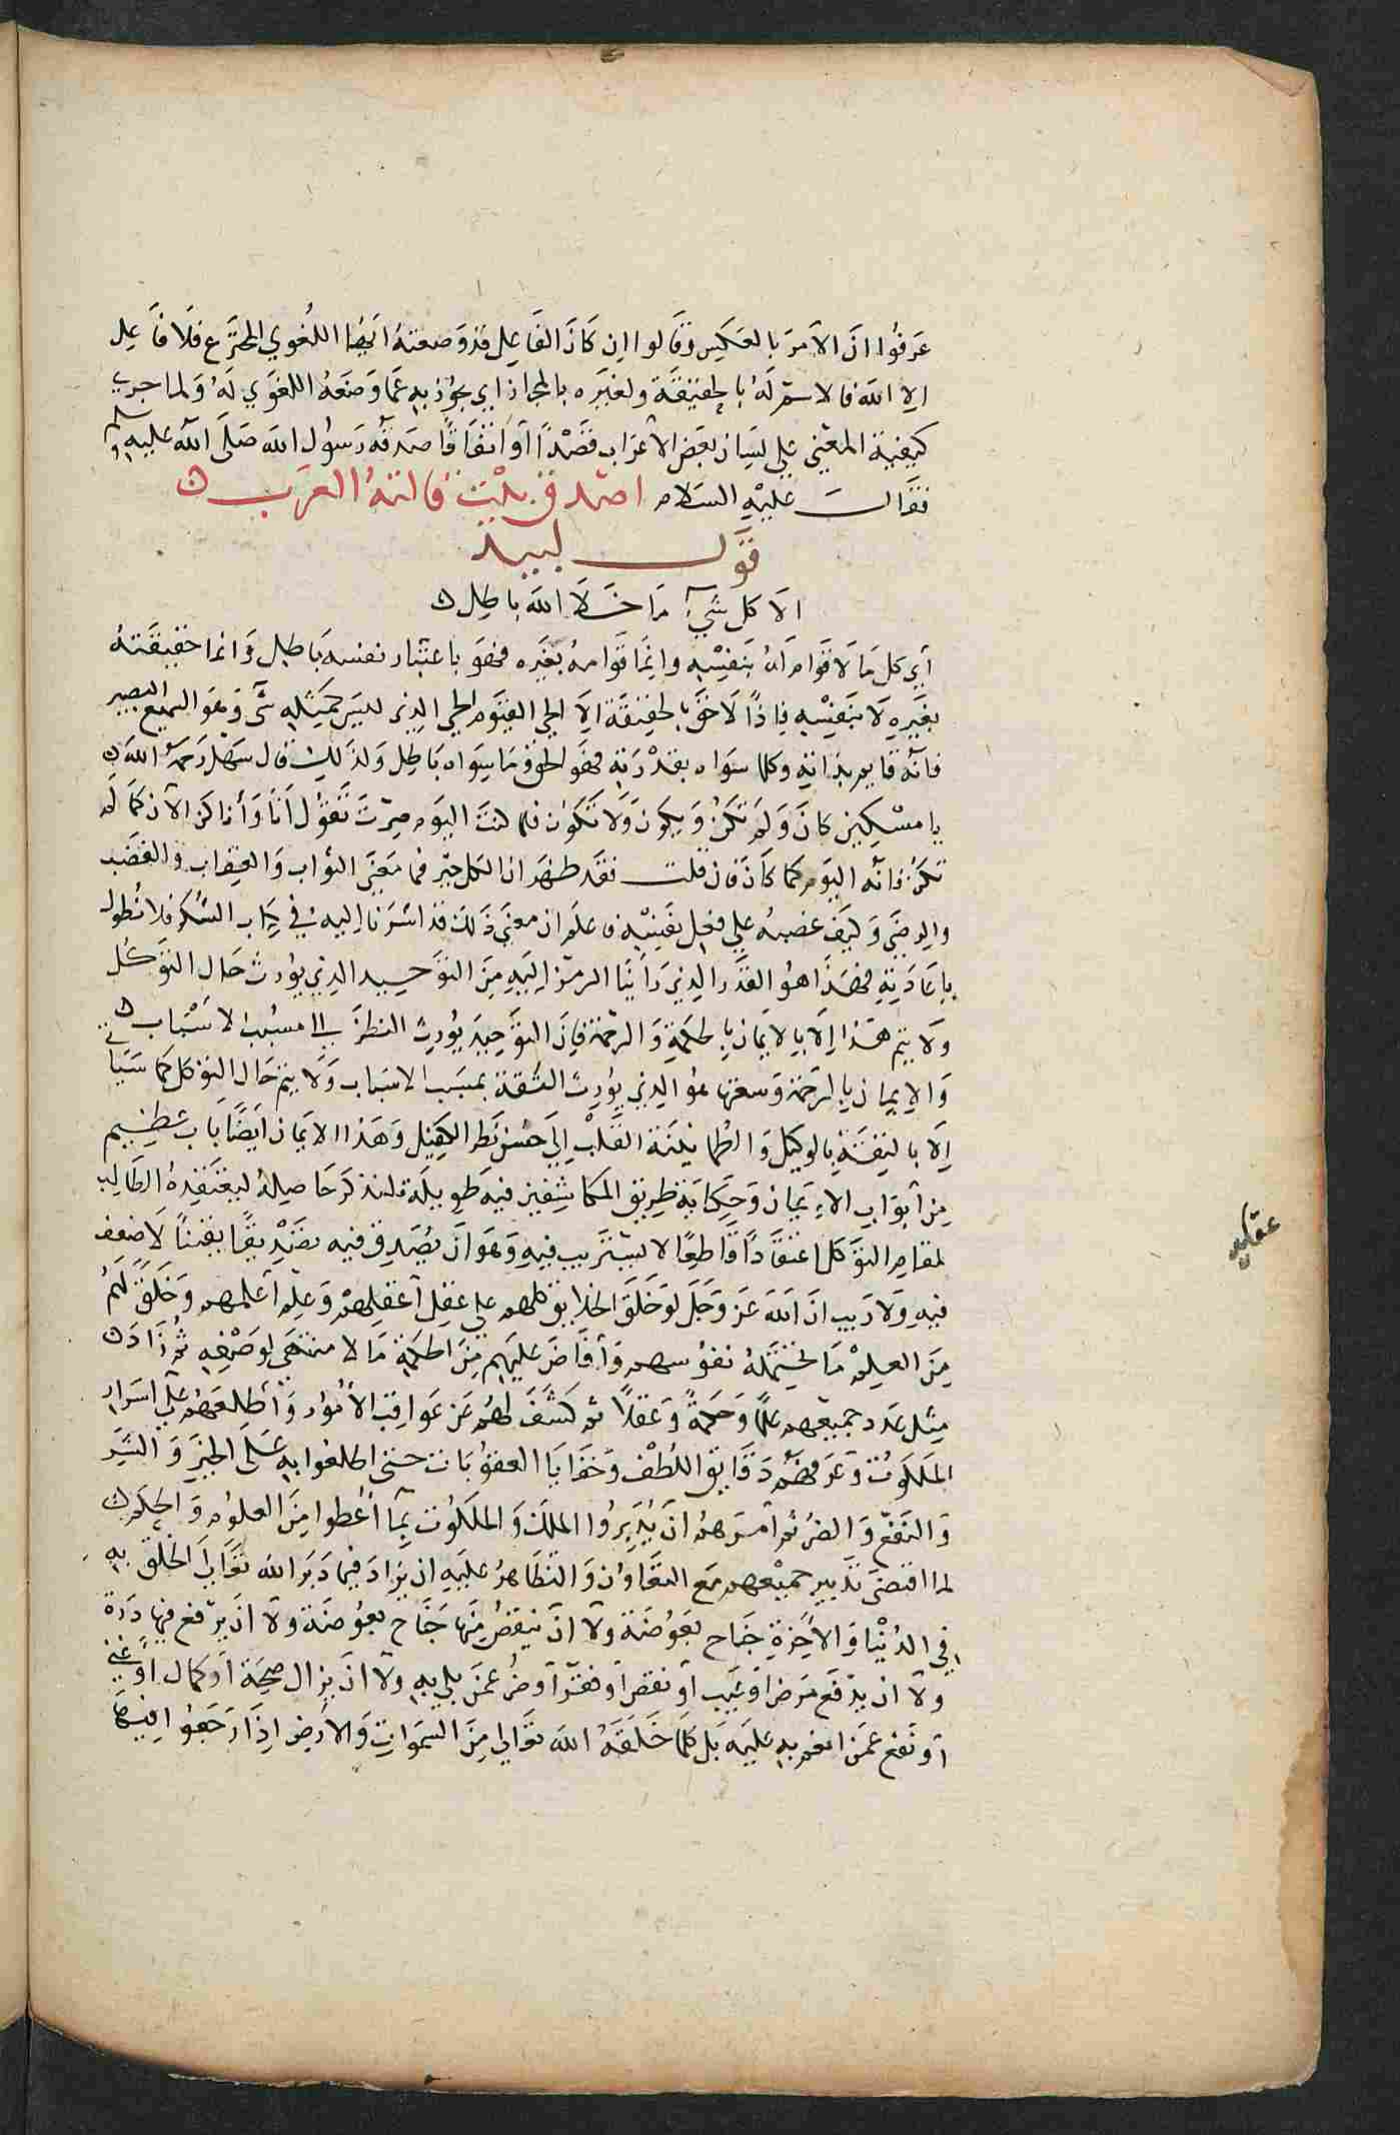 عَرفُوا انّ الأمرَ بالعكس وقالوا ان كان الفاعل قد وضعته ايها اللغوي للمخترع فلا فاعل
الا الله فالاسم له بالحقيقة ولغيره بالمجاز اي يجوز به عما وضعه اللغوي له ولما جري
كيفية المعني علي لسان بعض الأعراب قصدًا أو اتفاقًا صدقه رسول الله صلّى الله عليه وسلم
فقال عليه السلام اصدق بيت قالته العرب
قول لبيد
الا كل شيءٍ ما خلا الله باطل
أي كل ما لا قوام له بنفسه وإنما قوامه بغيره فهو باعتبار نفسه باطل وانما حقيقته
بغيره لا بنفسه فاذًا لا حق بالحقيقة الا الحي القيوم الحي الذي ليس كمثله شئ وهو السميع البصير
فانه قايم بذاته وكلما سواه بقدرته فهو الحق وما سواه باطل ولذلك قال سهل رحمه الله
يا مسكين كان ولم تكن ويكون ولا تكون فلما كنت اليوم صرت تقول انا وأنا كن الآن كما لم
تكن فانه اليوم كما كان فان قلت فقد ظهر ان الكل جبر فما معنى الثواب والعقاب والغضب
والرضى وكيف غضبه علي فعل نفسه فاعلم ان معنى ذلك قد اشرنا اليه في كتاب الشكر فلا نطول
باعادته فهذا هو القدر الذي رأينا الرمز اليه من التوحيد الذي يورث حال التوكل
ولا يتم هذا إلا بالايمان بالحكمة والرحمة فان التوحيد يورث النظر الي مسبب الاسباب
والايمان بالرحمة وسعتها هو الذي يورث الثقة بمسبب الاسباب ولا يتم حال التوكل كما سيأتي
إلا بالثقة بالوكيل والطمانينة القلب إلى حسن نظر الكفيل وهذا الايمان أيضًا باب عظيم
من أبواب الايمان وحكاية طريق المكاشفين فيه طويلة فلنذكر حاصله ليعتقده الطالب
لمقام التوكل اعتقادًا قاطعًا لا يستريب فيه وهو ان يصدق فيه تصديقًا يقينًا لا ضعف
فيه ولا ريب ان الله عز وجل لو خلق الخلايق كلهم علي عقل أعقلهم وعلم أعلمهم وخلق لهم
من العلم ما تحتمله نفوسهم وأفاض عليهم من الحكمة ما لا منتهى لوصفه ثم زاد
مثل عدد جميعهم علمًا وحكمةً وعقلًا ثم كشف لهم عن عواقب الأمور وأطلعهم علي اسرار
الملكوت وعرفهم دقايق اللطف وخفايا العقوبات حتى اطلعوا به على الخير والشر
والنفع والضر ثم أمرهم ان يدبروا الملك والملكوت بما أُعطوا من العلوم والحكم
لما اقتضى تدبير جميعهم مع التعاون والتظاهر عليه ان يزاد فيما دبر الله تعالى الخلق به
في الدنيا والآخرة جناح بعوضة ولا ان ينقص منها جناح بعوضة ولا ان يرفع فيها ذرة
ولا ان يدفع مرض أو عيب أو نقص أو فقر أو ضر عمن بلي به ولا ان يزال صحة أو كمال أو غنى
أو نفع عمن انعم به عليه بل كلما خلقه الله تعالي من السموات والأرض إذا رجعوا فيها
عقايد